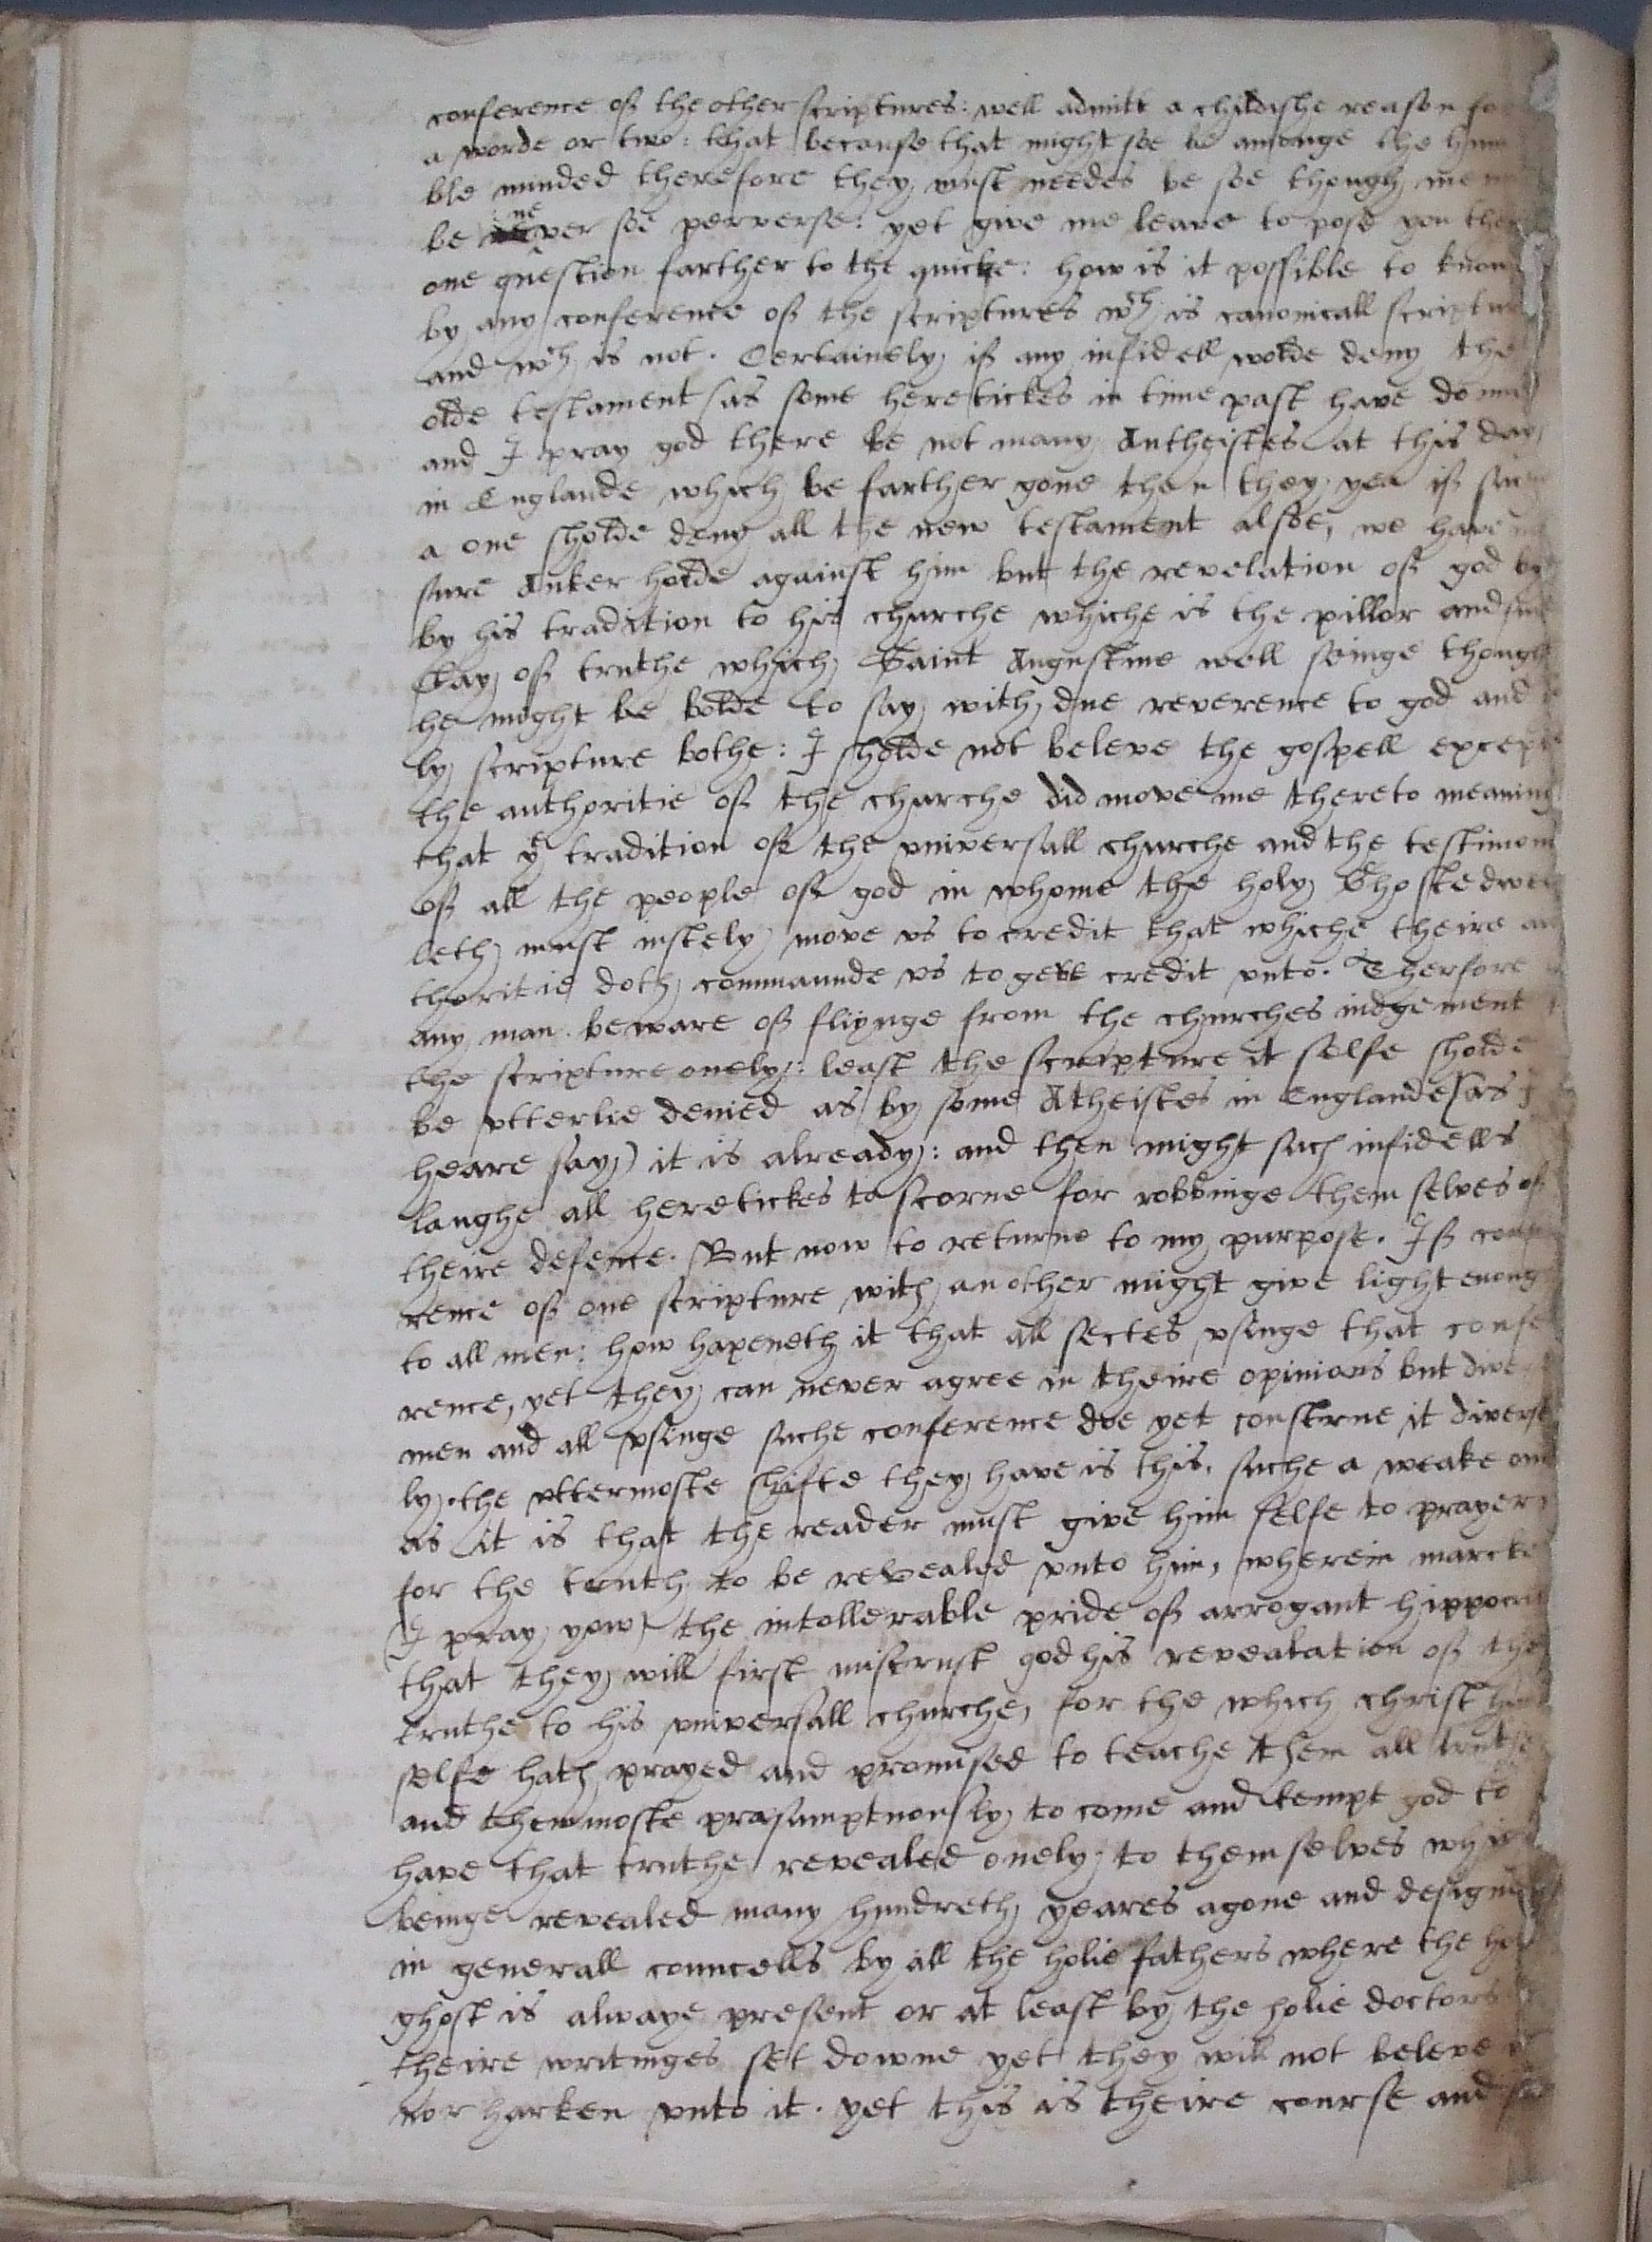 conference of the other scriptures: well admitt a childishe reason for
a worde or two: that becausе that might soe be amonge the hum
ble minded therefore they must needes be soe though men
be never soe perverse: yet give me leave to pose you then
one question farther to the quicke: how is it possible to know
by any conference of the scriptures wch is canonicall scripture
and wch is not. Certainely if any infidell wolde deny the
olde testament (as some heretickes in time past have donne
and I pray god there be not many Antheistes at this day
in Englande which be farther gone then they. yea if such
a one sholde deny all the new testament alsoe, we have no
sure Anker holde against him but the revelation of god
by his tradition to his churche whiche is the pillor and sure
stay of truthe which Saint Augustine well seinge thought
he might be bolde to say with due reverence to god and
ly scripture bothe: I sholde not beleve the gospell except
the authoritie of the churche did move me thereto meaning
that ye tradition of the universall churche and the testimony
of all the people of god in whome the holy Ghoste dwel
leth must justely move us to credit that whiche theire au
thoritie doth commaunde us to geve credit unto. Therfore
any man beware of fliynge from the churches judgement
the scripture onely: least the scripture it selfe sholde
be utterlie denied as by some Atheistes in Englande (as I
heare say) it is already: and then might such infidells
laughe all heretickes to scorne for robbinge them selves of
theire defence. But now to returne to my purpose. If confe
rence of one scripture with another might give light enough
to all men: how hapeneth it that all sectes usinge that confe
rence, yet they can never agree in theire opinions but divers
men and all usinge suche conference doe yet construe it diverse
ly. the uttermoste shifte they have is this, suche a weake one
as it is that the reader must give him selfe to prayer
for the truth to be revealed unto him, wherein marcke
(I pray yow) the intollerable pride of arrogant hippocrit
that they will first mistrust god his revealation of the
truthe to his universall churche, for the which christ him
selfe hath prayed and promised to teache them all truthe
and then moste præsumptuously to come and tempt god to
have that truthe revealed onely to themselves which
beinge revealed many hundreth yeares agone and designed
in generall councells by all the holie fathers where the holy
ghost is alwaye present or at least by the holie doctors
theire writinges set downe yet they will not beleve it
nor harken unto it. yet this is theire course and